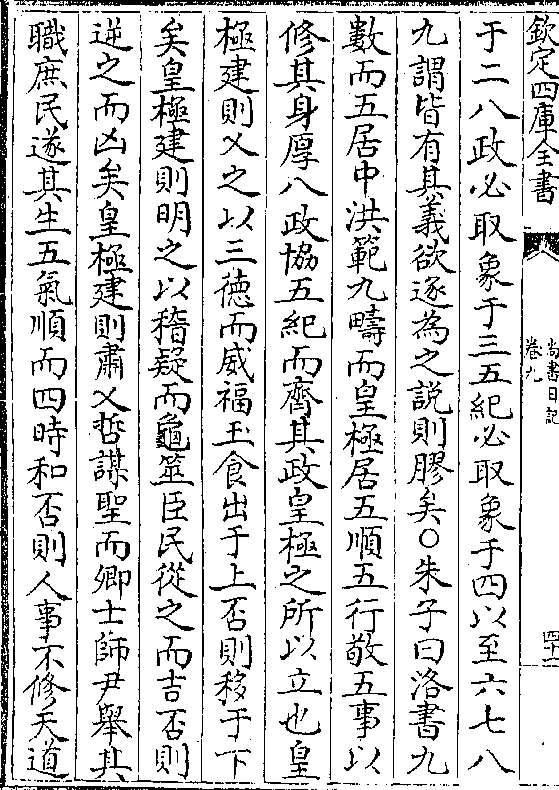 欽定四庫全書
尚書日記
卷九
四十一
于二八政必取象于三五紀必取象于四以至六七八
九謂皆有其義欲逐為之説則膠矣○朱子曰洛書九
數而五居中洪範九疇而皇極居五順五行敬五事以
修其身厚八政協五紀而齊其政皇極之所以立也皇
極建則乂之以三徳而威福玉食出于上否則移于下
矣皇極建則明之以稽疑而龜筮臣民從之而吉否則
逆之而凶矣皇極建則肅乂哲謀聖而卿士師尹舉其
職庶民遂其生五氣順而四時和否則人事不修天道